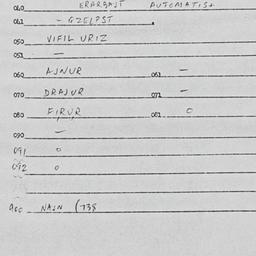 040 ERARBAJT AUTOMATISH
041 - GZELPST
050 VIFIL URIZ
051 —
060 AJNUR 061 —
070 DRAJUR 071 —
080 FIRUR 081 0
090 —
091 0
092 0
900 NAJN (738